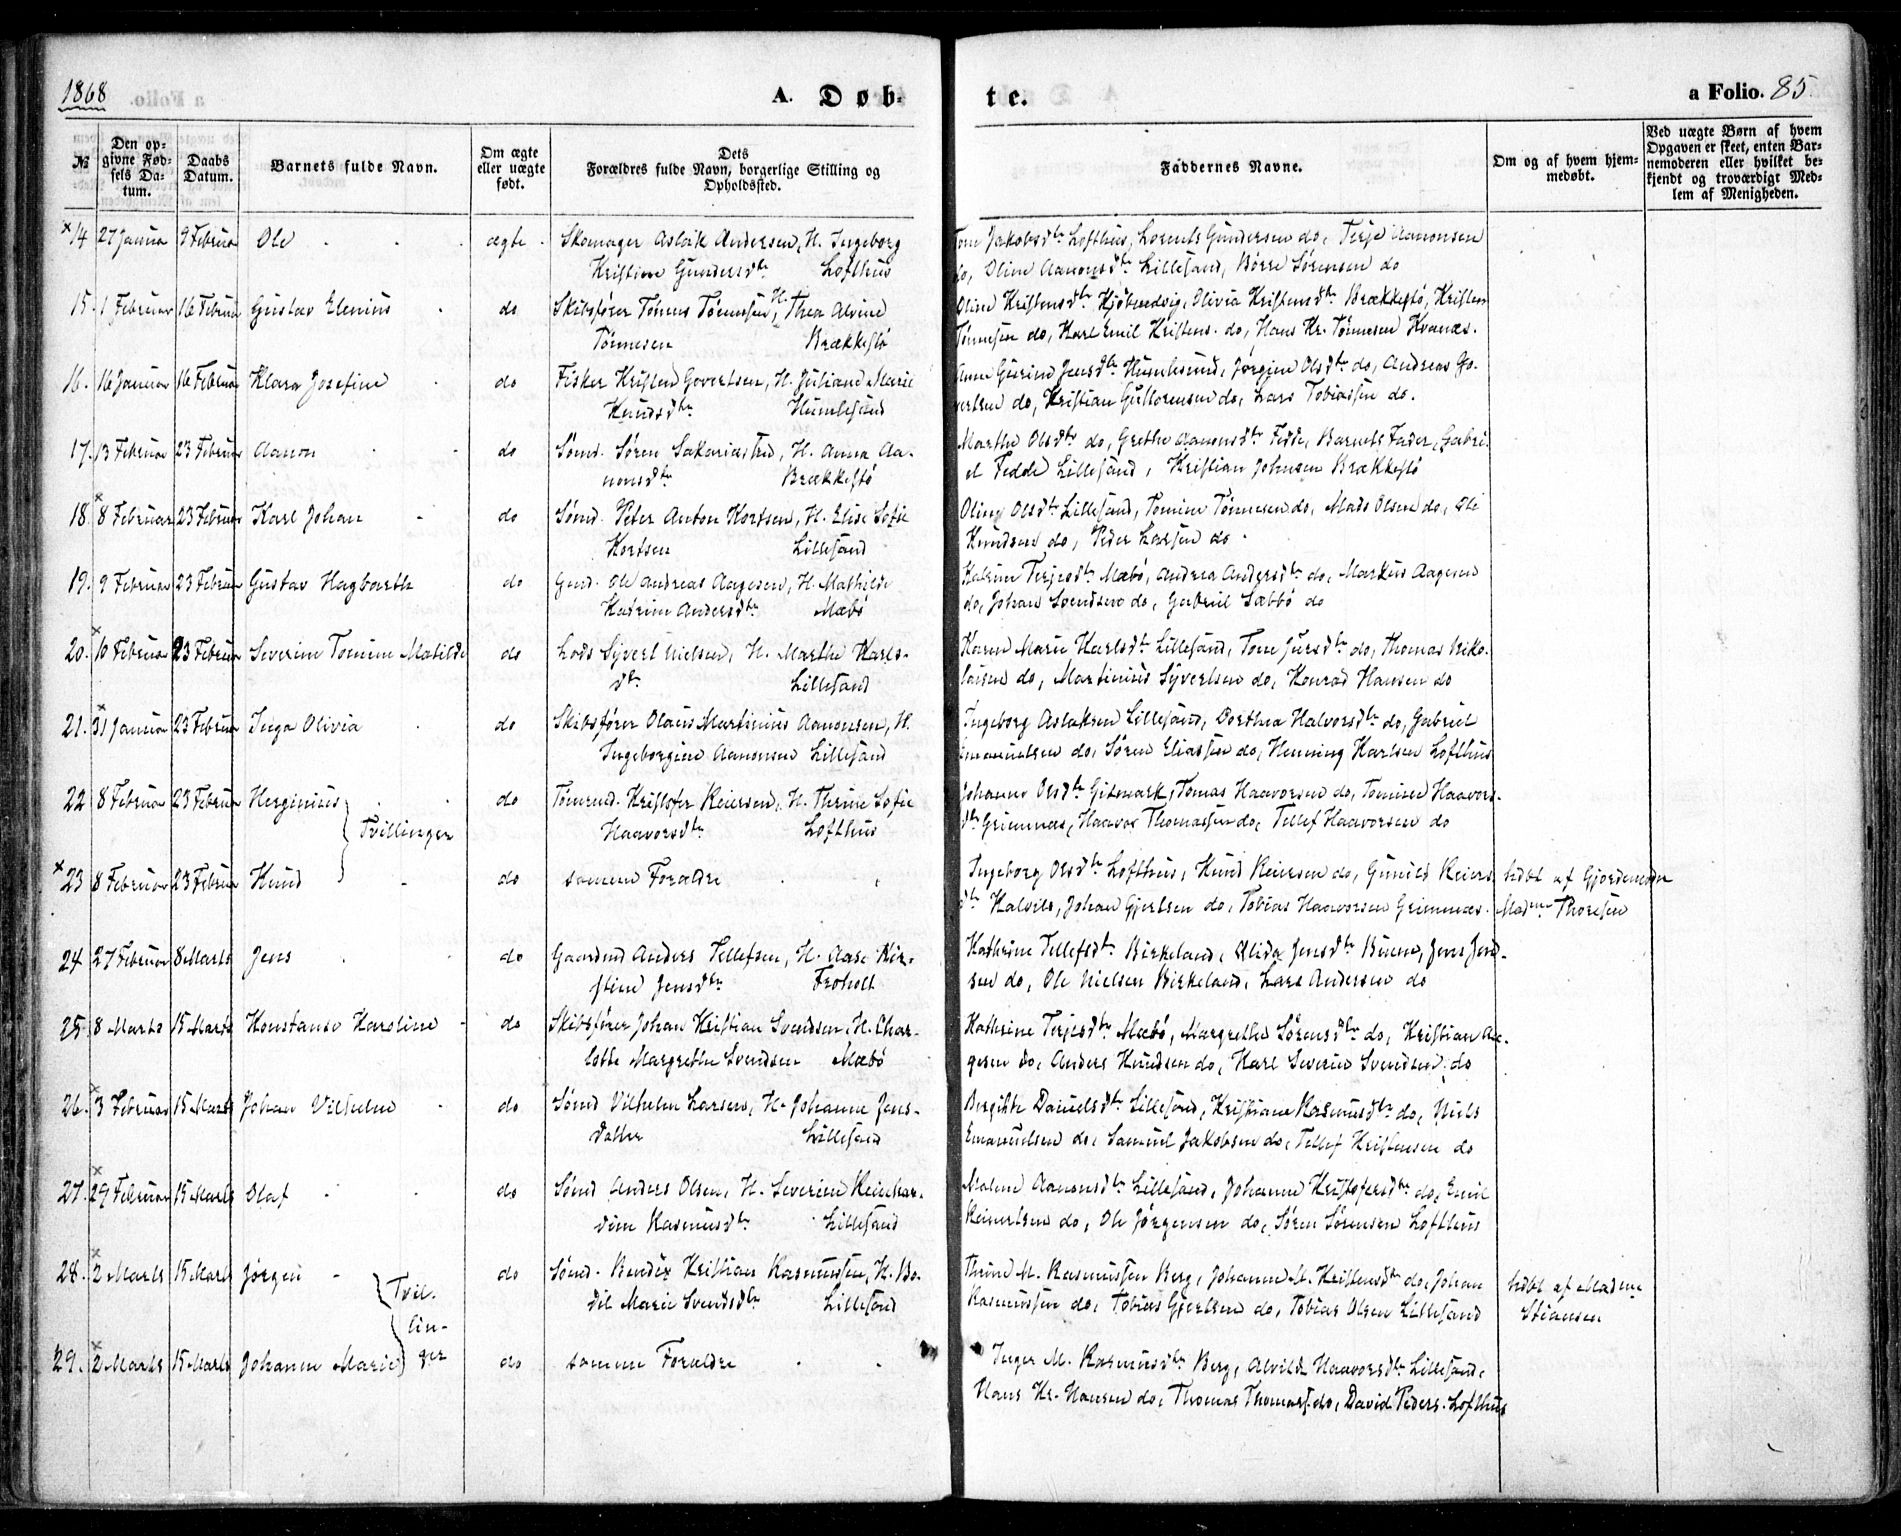 1868
A. Døb-
te.
a Folio. 85.
№
Den op-
givne Fød-
sels Da-
tum.
Daabs
Datum.
Barnets fulde Navn.
Om ægte
eller uægte
født.
Dets
Forældres fulde Navn, borgerlige Stilling og
Opholdssted.
Faddernes Navne.
Om og af hvem hjem-
medøbt.
Ved uægte Børn af hvem
Opgaven er skeet, enten Bar-
nemoderen eller hvilket be-
kjendt og troværdigt Med-
lem af Menigheden.
×14 27 Januar 9 Februar Ole ægte Skomager Aslak Andersen, H. Ingeborg
Kristine Gundersdtr Lofthus
Tone Jakobsdtr Lofthus, Lorents Gundersen do, Terje Aanonsen
do, Oline Aanonsdtr Lillesand, Børre Sørensen do
15. 1 Februar 16 Februar Gustav Elenius do Skibsfører Tønnes Tønnesen, H. Thea Alvine
Tønnesen Brækkestø
Oline Kristensdtr Kjøbmdvig, Olivia Kristensdtr Brækkestø, Kristen
Tønnesen do, Karl Emil Kristens. do, Hans Kr. Tønnesen Kvanes.
16. 16 Januar 16 Februar Klara Josefine do Fisker Kristen Govertsen, H. Juliane Marie
Knudsdtr Humlesund
Anne Gurine Jensdtr Humlesund, Jørgine Olsdtr do, Andreas Go-
vertsen do, Kristian Guttormsen do, Lars Tobiassen do.
17. 13 Februar 23 Februar Aanon do Sømd. Søren Sakariassen, H. Anna Aa-
nonsdtr Brækkestø
Marthe Olsdtr do, Grethe Aanonsdtr Fedde, Barnets Fader, Gabri-
el Fedde Lillesand, Kristian Johnsen Brækkestø
18. × 8 Februar 23 Februar Karl Johan do Sømd. Peter Anton Kortsen, H. Elise Sofie
Kortsen Lillesand
Oline Olsdtr Lillesand, Tomine Tønnesen do, Mads Olsen do, Ole
Knudsen do, Peder Larsen do.
19. 9 Februar 23 Februar Gustav Hagbarth do Gmd. Ole Andreas Aagesen, H. Mathilde
Katrine Andersdtr Mæbø
Katrine Terjesdtr Mæbø, Andrea Andersdtr do, Markus Aagesen
do, Johan Svendsen do, Gabriel Sæbbø do
20. × 10 Februar 23 Februar Severine Tomine Matilde do Lods Syvert Nielsen, H. Marthe Karls-
dtr Lillesand
Karen Marie Karlsdtr Lillesand, Tone Jursdtr do, Thomas Niko-
laisen do, Martinius Syvertsen do, Konrad Hansen do
21. × 31 Januar 23 Februar Inga Olivia do Skibsfører Olaus Martinius Aanonsen, H.
Ingeborgine Aanonsen Lillesand
Ingeborg Aslaksen Lillesand, Dorthea Halvorsdtr do, Gabriel
Emanuelsen do, Søren Eliassen do, Henning Karlsen Lofthus
22 8 Februar 23 Februar Herginius do Tømmd. Kristofer Reiersen, H. Thrine Sofie
Tvillinger
Haavorsdtr Lofthus
Johanne Olsdtr Gitmark, Tomas Haavorsen do, Tomine Haavors-
dtr Grimnæs, Haavor Thomassen do, Tellef Haavorsen do
×23 8 Februar 23 Februar Knud do samme Forældre
Ingeborg Olsdtr Lofthus, Knud Reiersen do, Gunild Reiers-
dtr Kalvild, Johan Gjertsen do, Tobias Haavorsen Grimnæs.
hdbt af Gjordemoder
Madme Thorsen
24 27 Februar 8 Marts Jens do Gaardmd Anders Tellefsen, H. Aase Kir-
stine Jensdtr Froholt
Kathrine Tellefsdtr Birkeland, Alida Jensdtr Biune, Jens Jen-
sen do, Ole Nielsen Birkeland, Lars Andersen do
25. 8 Marts 15 Marts Konstanse Karoline do Skibsfører Johan Kristian Svendsen, H. Char-
lotte Margrethe Svendsen Mæbø
Kathrine Terjesdtr Mæbø, Margrethe Sørensdtr do, Kristian Aa-
gesen do, Anders Knudsen do, Karl Severin Svendsen do
26. × 3 Februar 15 Marts Johan Vilhelm do Sømd Vilhelm Larsen, H. Johanne Jens-
datter Lillesand
Bergitte Danielsdtr Lillesand, Kristiane Rasmusdtr do, Niels
Emanuelsen do, Samuel Jakobsen do, Tellef Kristensen do
27. × 29 Februar 15 Marts Olaf do Sømd Anders Olsen, H. Severine Reinhar-
dine Rasmusdtr Lillesand
Malene Aanonsdtr Lillesand, Johanne Kristofersdtr do, Emil
Reinertsen do, Ole Jørgensen do, Søren Sørensen Lofthus
28. × 2 Marts 15 Marts Jørgen do Sømd. Bendix Kristian Rasmussen, H. Bo-
dil Marie Svendsdtr Lillesand
Tvil-
lin-
ger
Thrine M. Rasmussen Berg, Johanne M. Kristensdtr do, Johan
Rasmussen do, Tobias Gjertsen do, Tobias Olsen Lillesand
hdbt af Madme
Stiansen
29. × 2 Marts 15 Marts Johanne Marie do samme Forældre
Inger M. Rasmusdtr Berg, Alvilde Haavorsdtr Lillesand,
Hans Kr. Hansen do, Thomas Thomass. do, David Peders. Lofthus